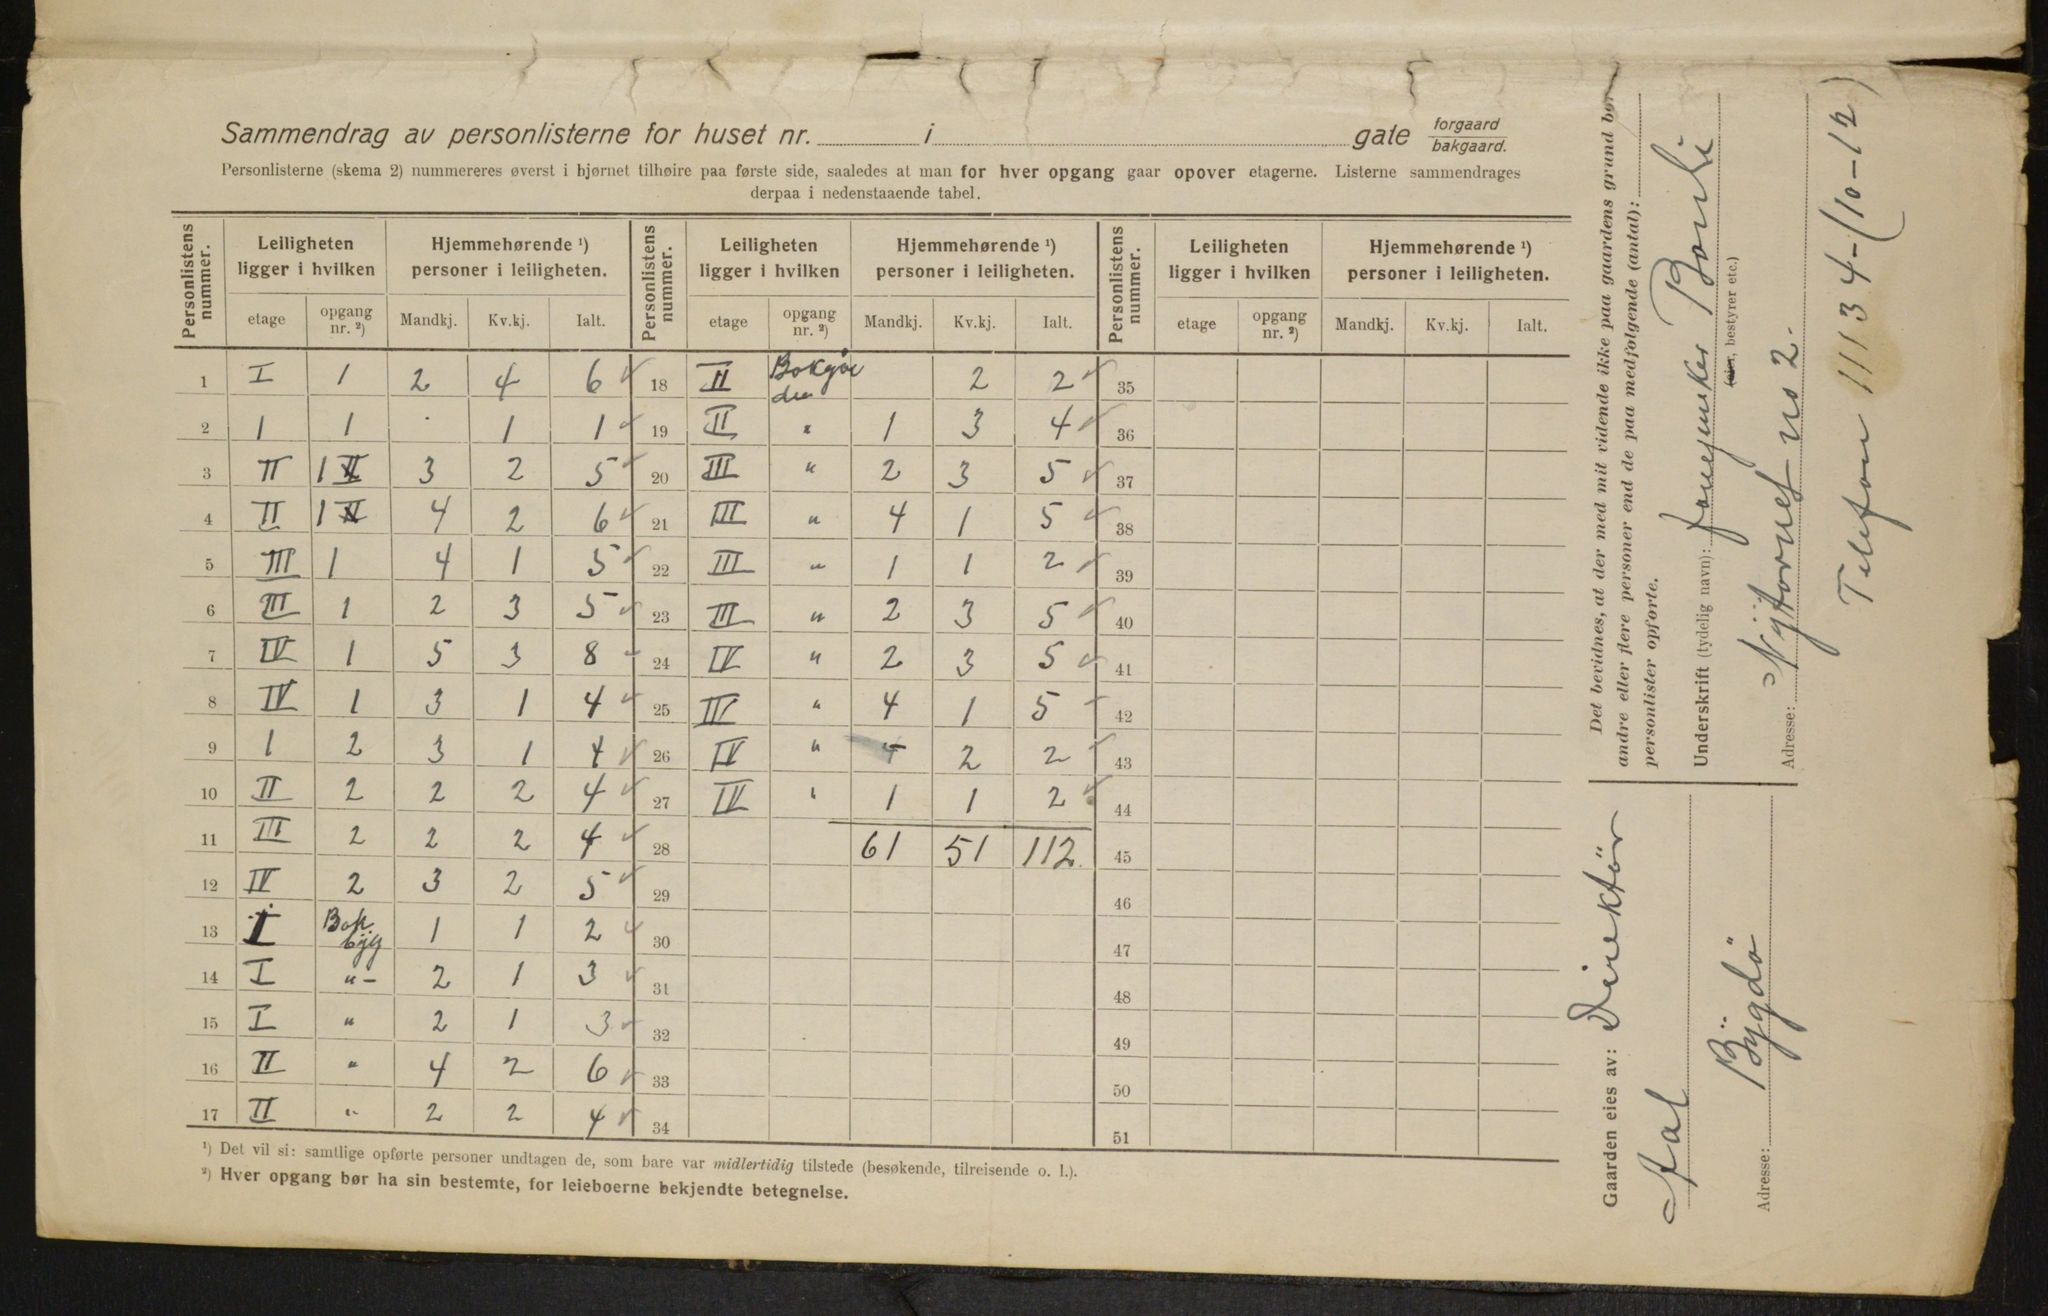 Sammendrag av personlisterne for huset nr. i gate forgaard bakgaard.
Personlisterne (skema 2) nummereres øverst i hjørnet tilhøire paa første side, saaledes at man for hver opgang gaar opover etagerne. Listerne sammendrages
derpaa i nedenstaaende tabel.
Personlistens nummer. Leiligheten ligger i hvilken Hjemmehørende ¹) personer i leiligheten. Personlistens nummer. Leiligheten ligger i hvilken Hjemmehørende ¹) personer i leiligheten. Personlistens nummer. Leiligheten ligger i hvilken Hjemmehørende ¹) personer i leiligheten.
etage opgang nr. ²) Mandkj. Kv.kj. Ialt. etage opgang nr. ²) Mandkj. Kv.kj. Ialt. etage opgang nr. ²) Mandkj. Kv.kj. Ialt.
1 I 1 2 4 6 18 II 2 2 35
2 1 1 1 1 19 II " 1 3 4 36
3 II 1 3 2 5 20 III " 2 3 5 37
4 II 1 4 2 6 21 III " 4 1 5 38
5 III 1 4 1 5 22 III " 1 1 2 39
6 III 1 2 3 5 23 III " 2 3 5 40
7 IV 1 5 3 8 24 IV " 2 3 5 41
8 IV 1 3 1 4 25 IV " 4 1 5 42
9 1 2 3 1 4 26 IV " - 2 2 43
10 II 2 2 2 4 27 IV " 1 1 2 44
11 III 2 2 2 4 28 61 51 112. 45
12 IV 2 3 2 5 29 46
13 I Bak byg 1 1 2 30 47
14 I "- 2 1 3 31 48
15 I " 2 1 3 32 49
16 II " 4 2 6 33 50
17 II " 2 2 4 34 51
¹) Det vil si: samtlige opførte personer undtagen de, som bare var midlertidig tilstede (besøkende, tilreisende o. l.).
²) Hver opgang bør ha sin bestemte, for leieboerne bekjendte betegnelse.
Det bevidnes, at der med mit vidende ikke paa gaardens grund bor
andre eller flere personer end de paa medfølgende (antal):
personlister opførte.
Underskrift (tydelig navn):
(eier, bestyrer etc.)
Adresse: Nÿtorvet no 2.
Telefon 11134-(10-12)
Gaarden eies av: Direktör
Adresse: Bÿgdö